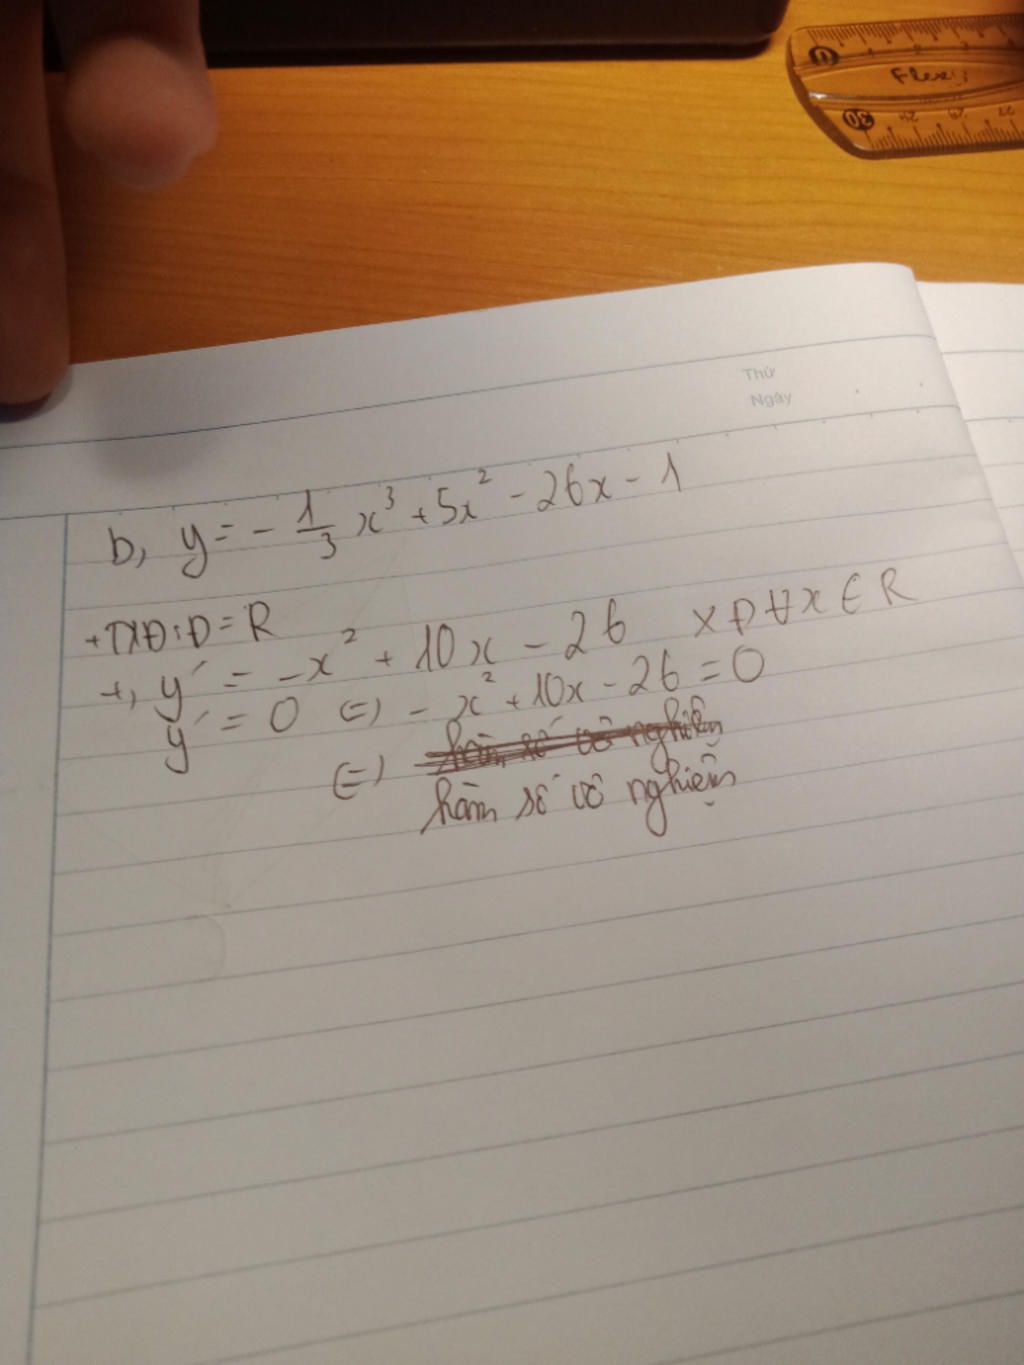 Flexi
Thứ
Ngày
b, y = - 1/3 x³ + 5x² - 26x - 1
+TXĐ: D = R
+, y' = -x² + 10x - 26 XĐ ∀x ∈ R
y' = 0 (=) - x² + 10x - 26 = 0
(=) hàm số vô nghiệm
hàm số vô nghiệm